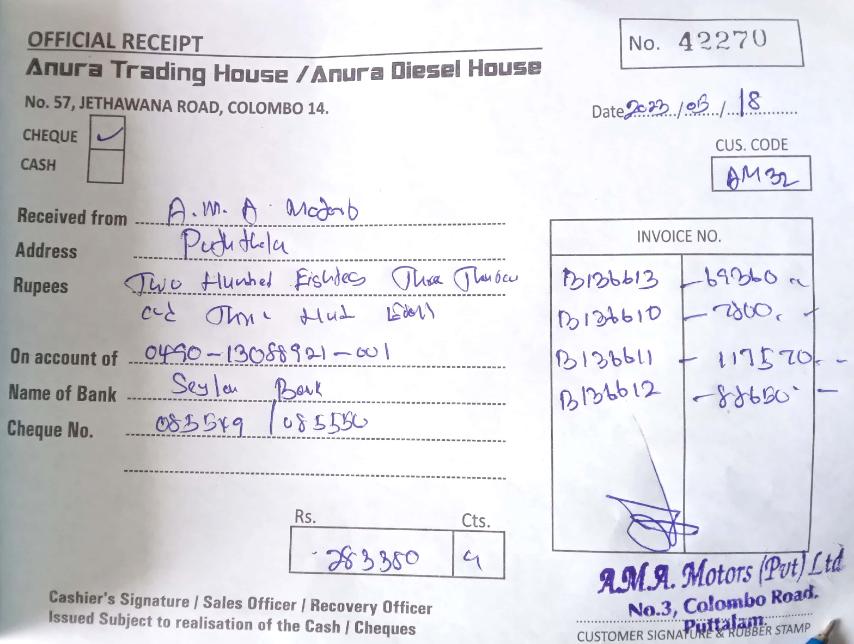 OFFICIAL RECEIPT
No. 42270
Anura Trading House / Anura Diesel House
No. 57, JETHAWANA ROAD, COLOMBO 14.
Date 2023/05/18
CHEQUE ✓
CASH
CUS. CODE
AM32
Received from A.M.A Motors
Address Puttalam
Rupees Two Hundred Eighty Three Thousand
and Three Hund
On account of 0490-13088921-001
Name of Bank Seylan Bank
Cheque No. 085549 / 085550
INVOICE NO.
B136613 - 69360
B136610 - 7800
B136611 - 117570
B136612 - 88650
Rs. Cts.
283380
Cashier's Signature / Sales Officer / Recovery Officer
Issued Subject to realisation of the Cash / Cheques
A.M.A. Motors (Pvt) Ltd
No.3, Colombo Road.
Puttalam.
CUSTOMER SIGNATURE & RUBBER STAMP